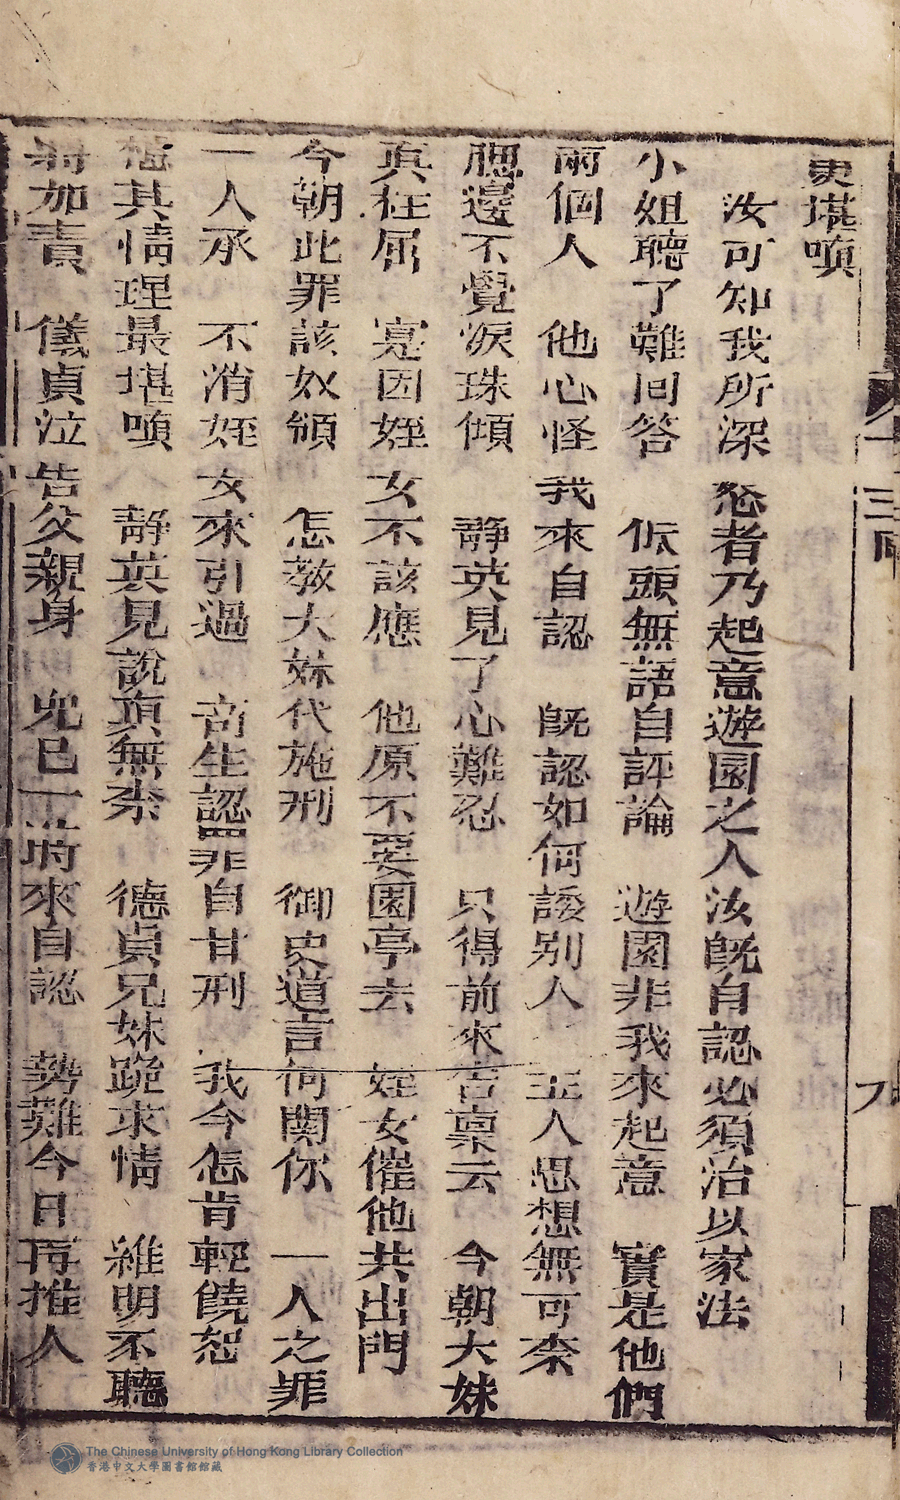 更堪嗔
汝可知我所深怒者乃起意遊園之人汝既自認必須治以家法
小姐聽了難回答 低頭無語自評論 遊園非我來起意 實是他們
兩個人 他心怪我來自認 既認如何諉别人 主人思想無可奈
腮邊不覺淚珠傾 靜英見了心難忍 只得前來告稟云 今朝大妹
真枉屈 寔因姪女不該應 他原不要園亭去 姪女催他共出門
今朝此罪該奴領 怎教大妹代施刑 御史道言何関你 一人之罪
一人承 不消姪女來引過 畜生認罪自甘刑 我今怎肯輕饒恕
想其情理最堪嗔 靜英見說真無奈 德貞兄妹跪求情 維明不聽
將加責 儀貞泣告父親身 兒已一時來自認 勢難今日再推人
三回
九
The Chinese University of Hong Kong Library Collection
香港中文大學圖書館館藏